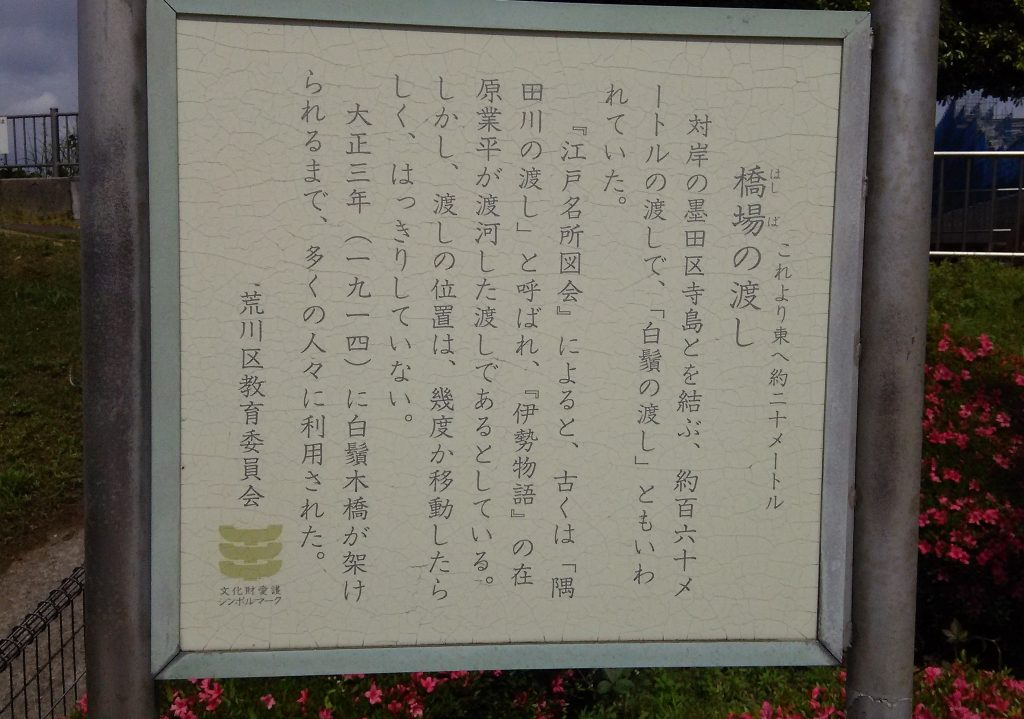 これより東へ約二十メートル
はしば
橋場の渡し
対岸の墨田区寺島とを結ぶ、約百六十メ
ートルの渡しで、「白鬚の渡し」ともいわ
れていた。
『江戸名所図会』によると、古くは「隅
田川の渡し」と呼ばれ、『伊勢物語』の在
原業平が渡河した渡しであるとしている。
しかし、渡しの位置は、幾度か移動したら
しく、はっきりしていない。
大正三年（一九一四）に白鬚木橋が架け
られるまで、多くの人々に利用された。
荒川区教育委員会
文化財愛護
シンボルマーク